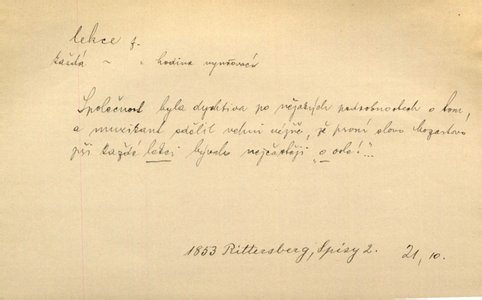 lekce f.
každá ~ hodina vyučovací
Společnost byla dychtiva po nějakých podrobnostech o tom,
a muzikant sdělil velmi vážně, že první slovo Mozartovo
při každé lekci bývalo nejčastěji „o osle!"...
1853 Rittersberg, Spisy 2. 21, 10.